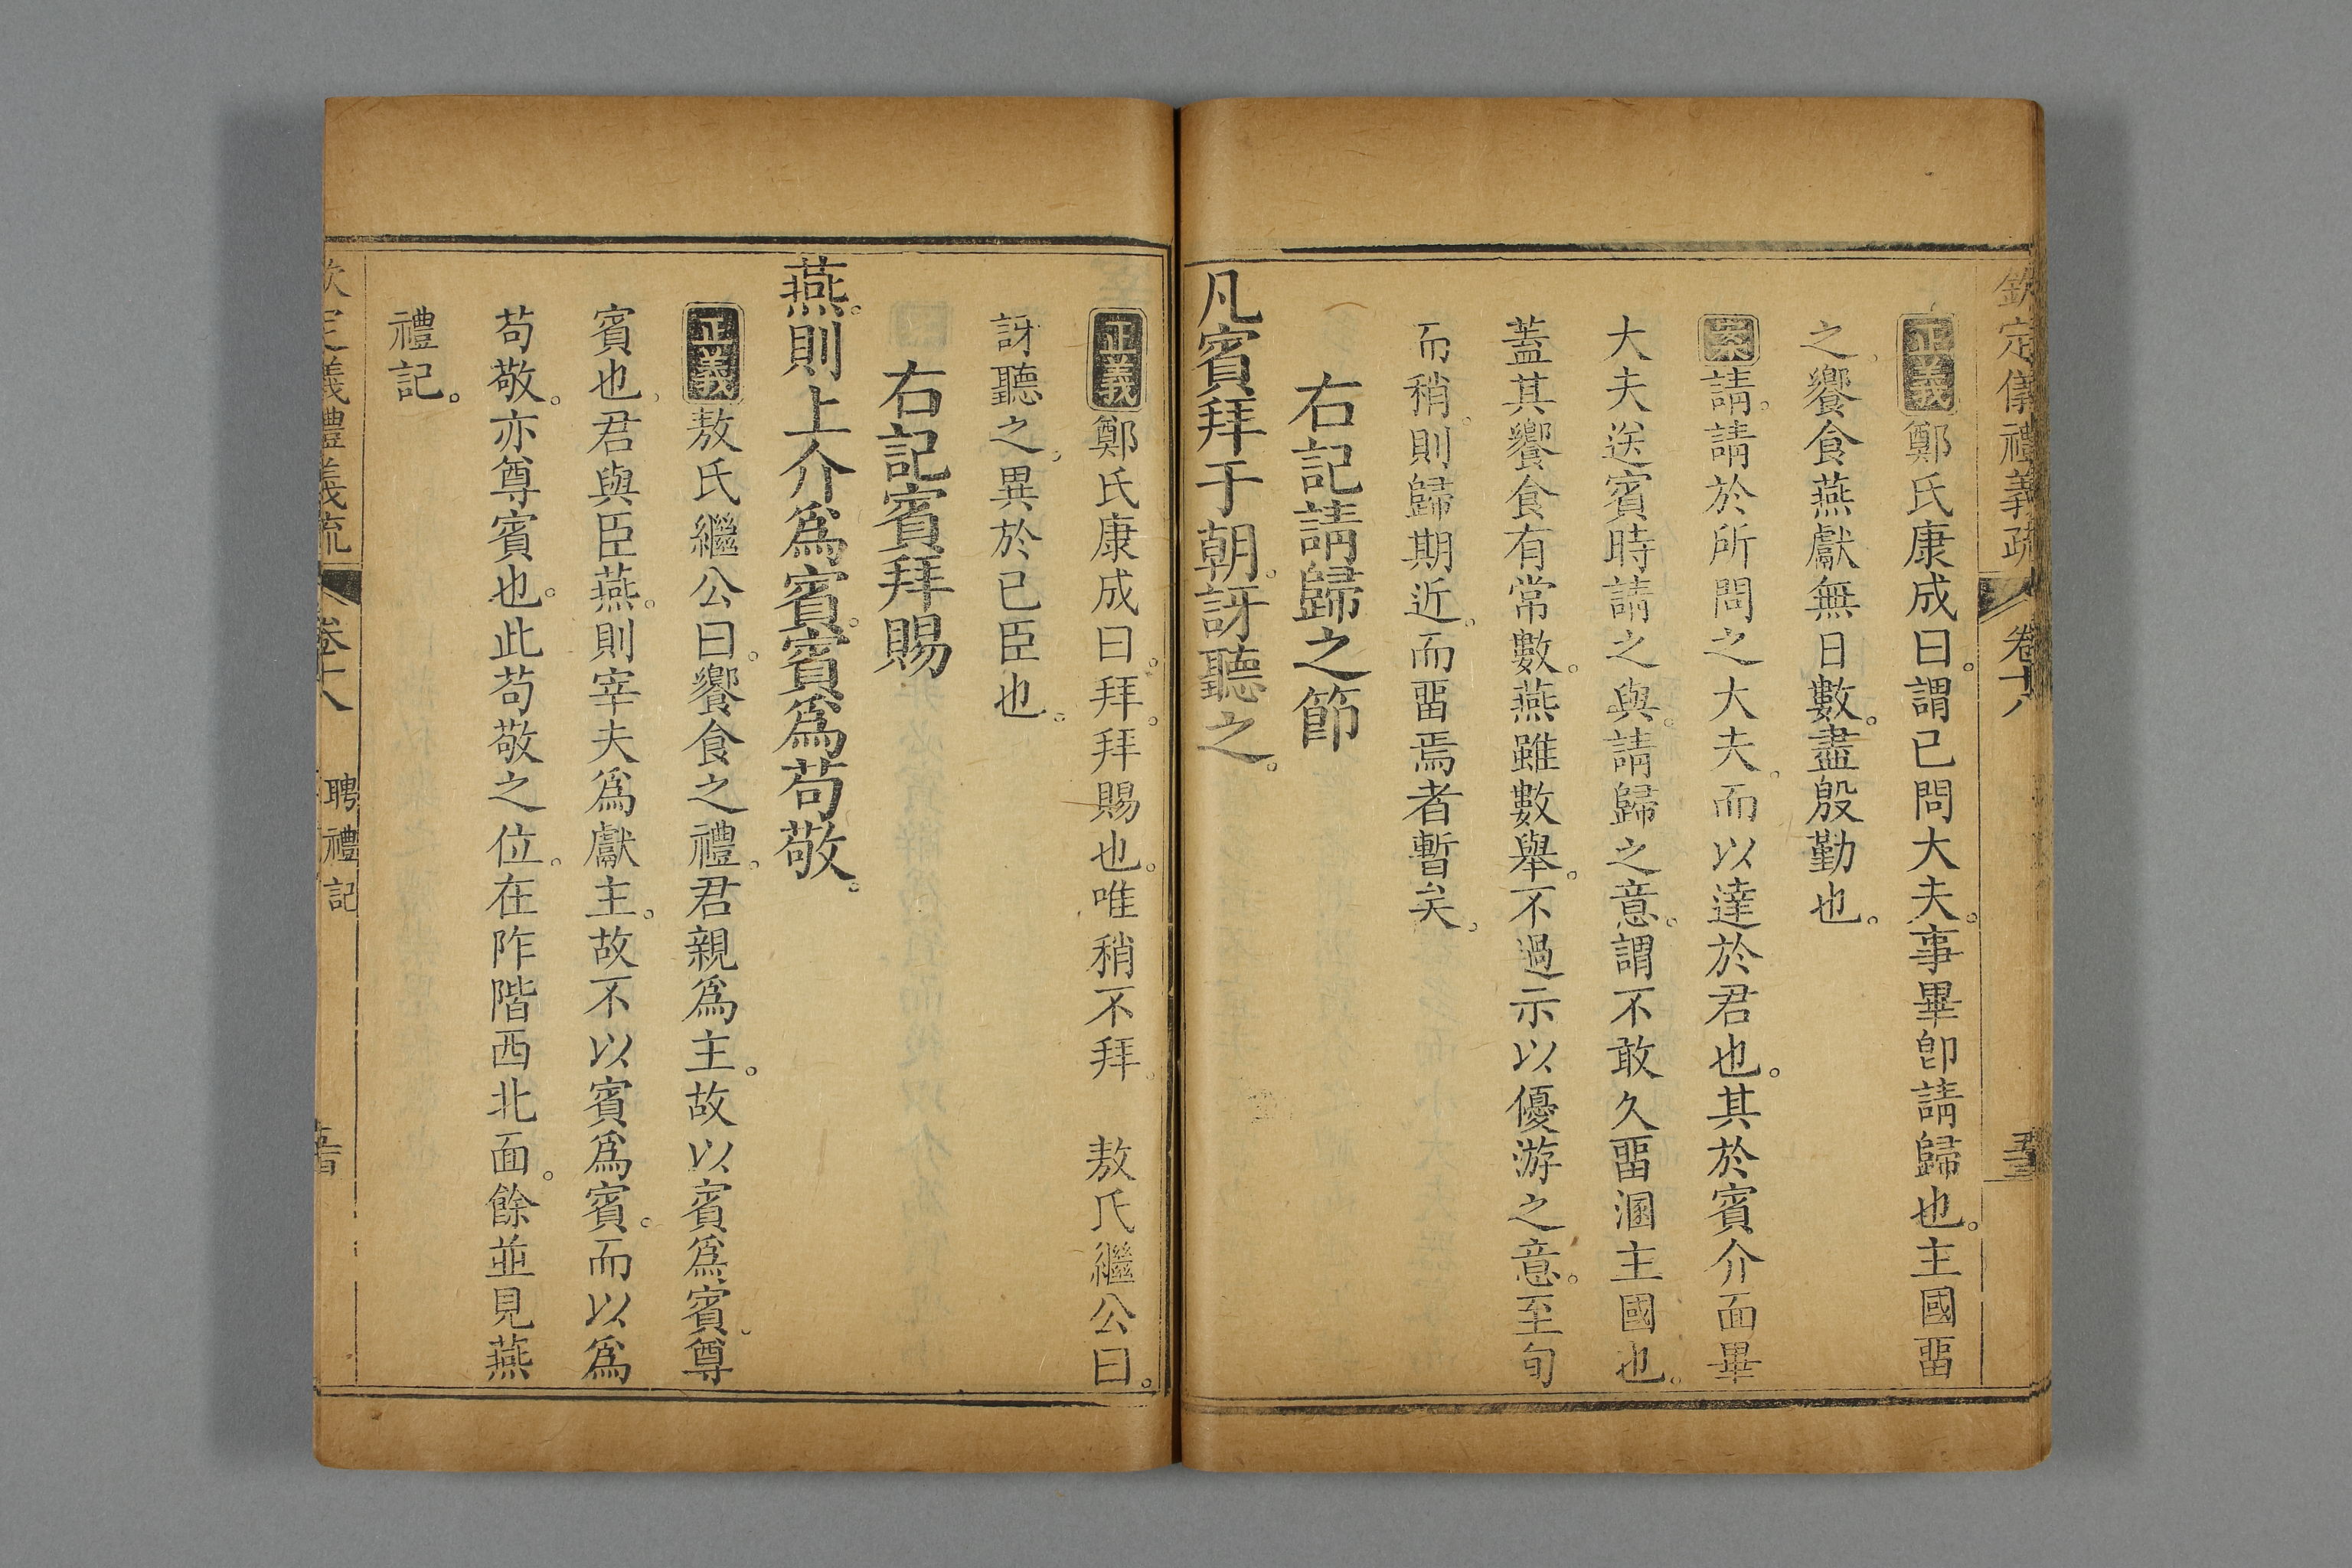 欽定儀禮義疏 卷十八
正義鄭氏康成曰。謂已問大夫。事畢卽請歸也。主國畱
之。饗食燕獻無日數。盡殷勤也。
案請。請於所問之大夫。而以達於君也。其於賓介面畢
大夫送賓時請之與。請歸之意。謂不敢久畱溷主國也。
蓋其饗食有常數。燕雖數舉。不過示以優游之意。至旬
而稍。則歸期近。而畱焉者暫矣。
右記請歸之節
凡賓拜于朝。訝聽之。
正義鄭氏康成曰。拜。拜賜也。唯稍不拜。 敖氏繼公曰。
訝聽之。異於已臣也。
右記賓拜賜
燕。則上介爲賓。賓爲苟敬。
正義敖氏繼公曰。饗食之禮。君親爲主。故以賓爲賓。尊
賓也。君與臣燕。則宰夫爲獻主。故不以賓爲賓。而以爲
苟敬。亦尊賓也。此苟敬之位。在阼階西北面。餘並見燕
禮記。
欽定儀禮義疏 卷十八 聘禮記